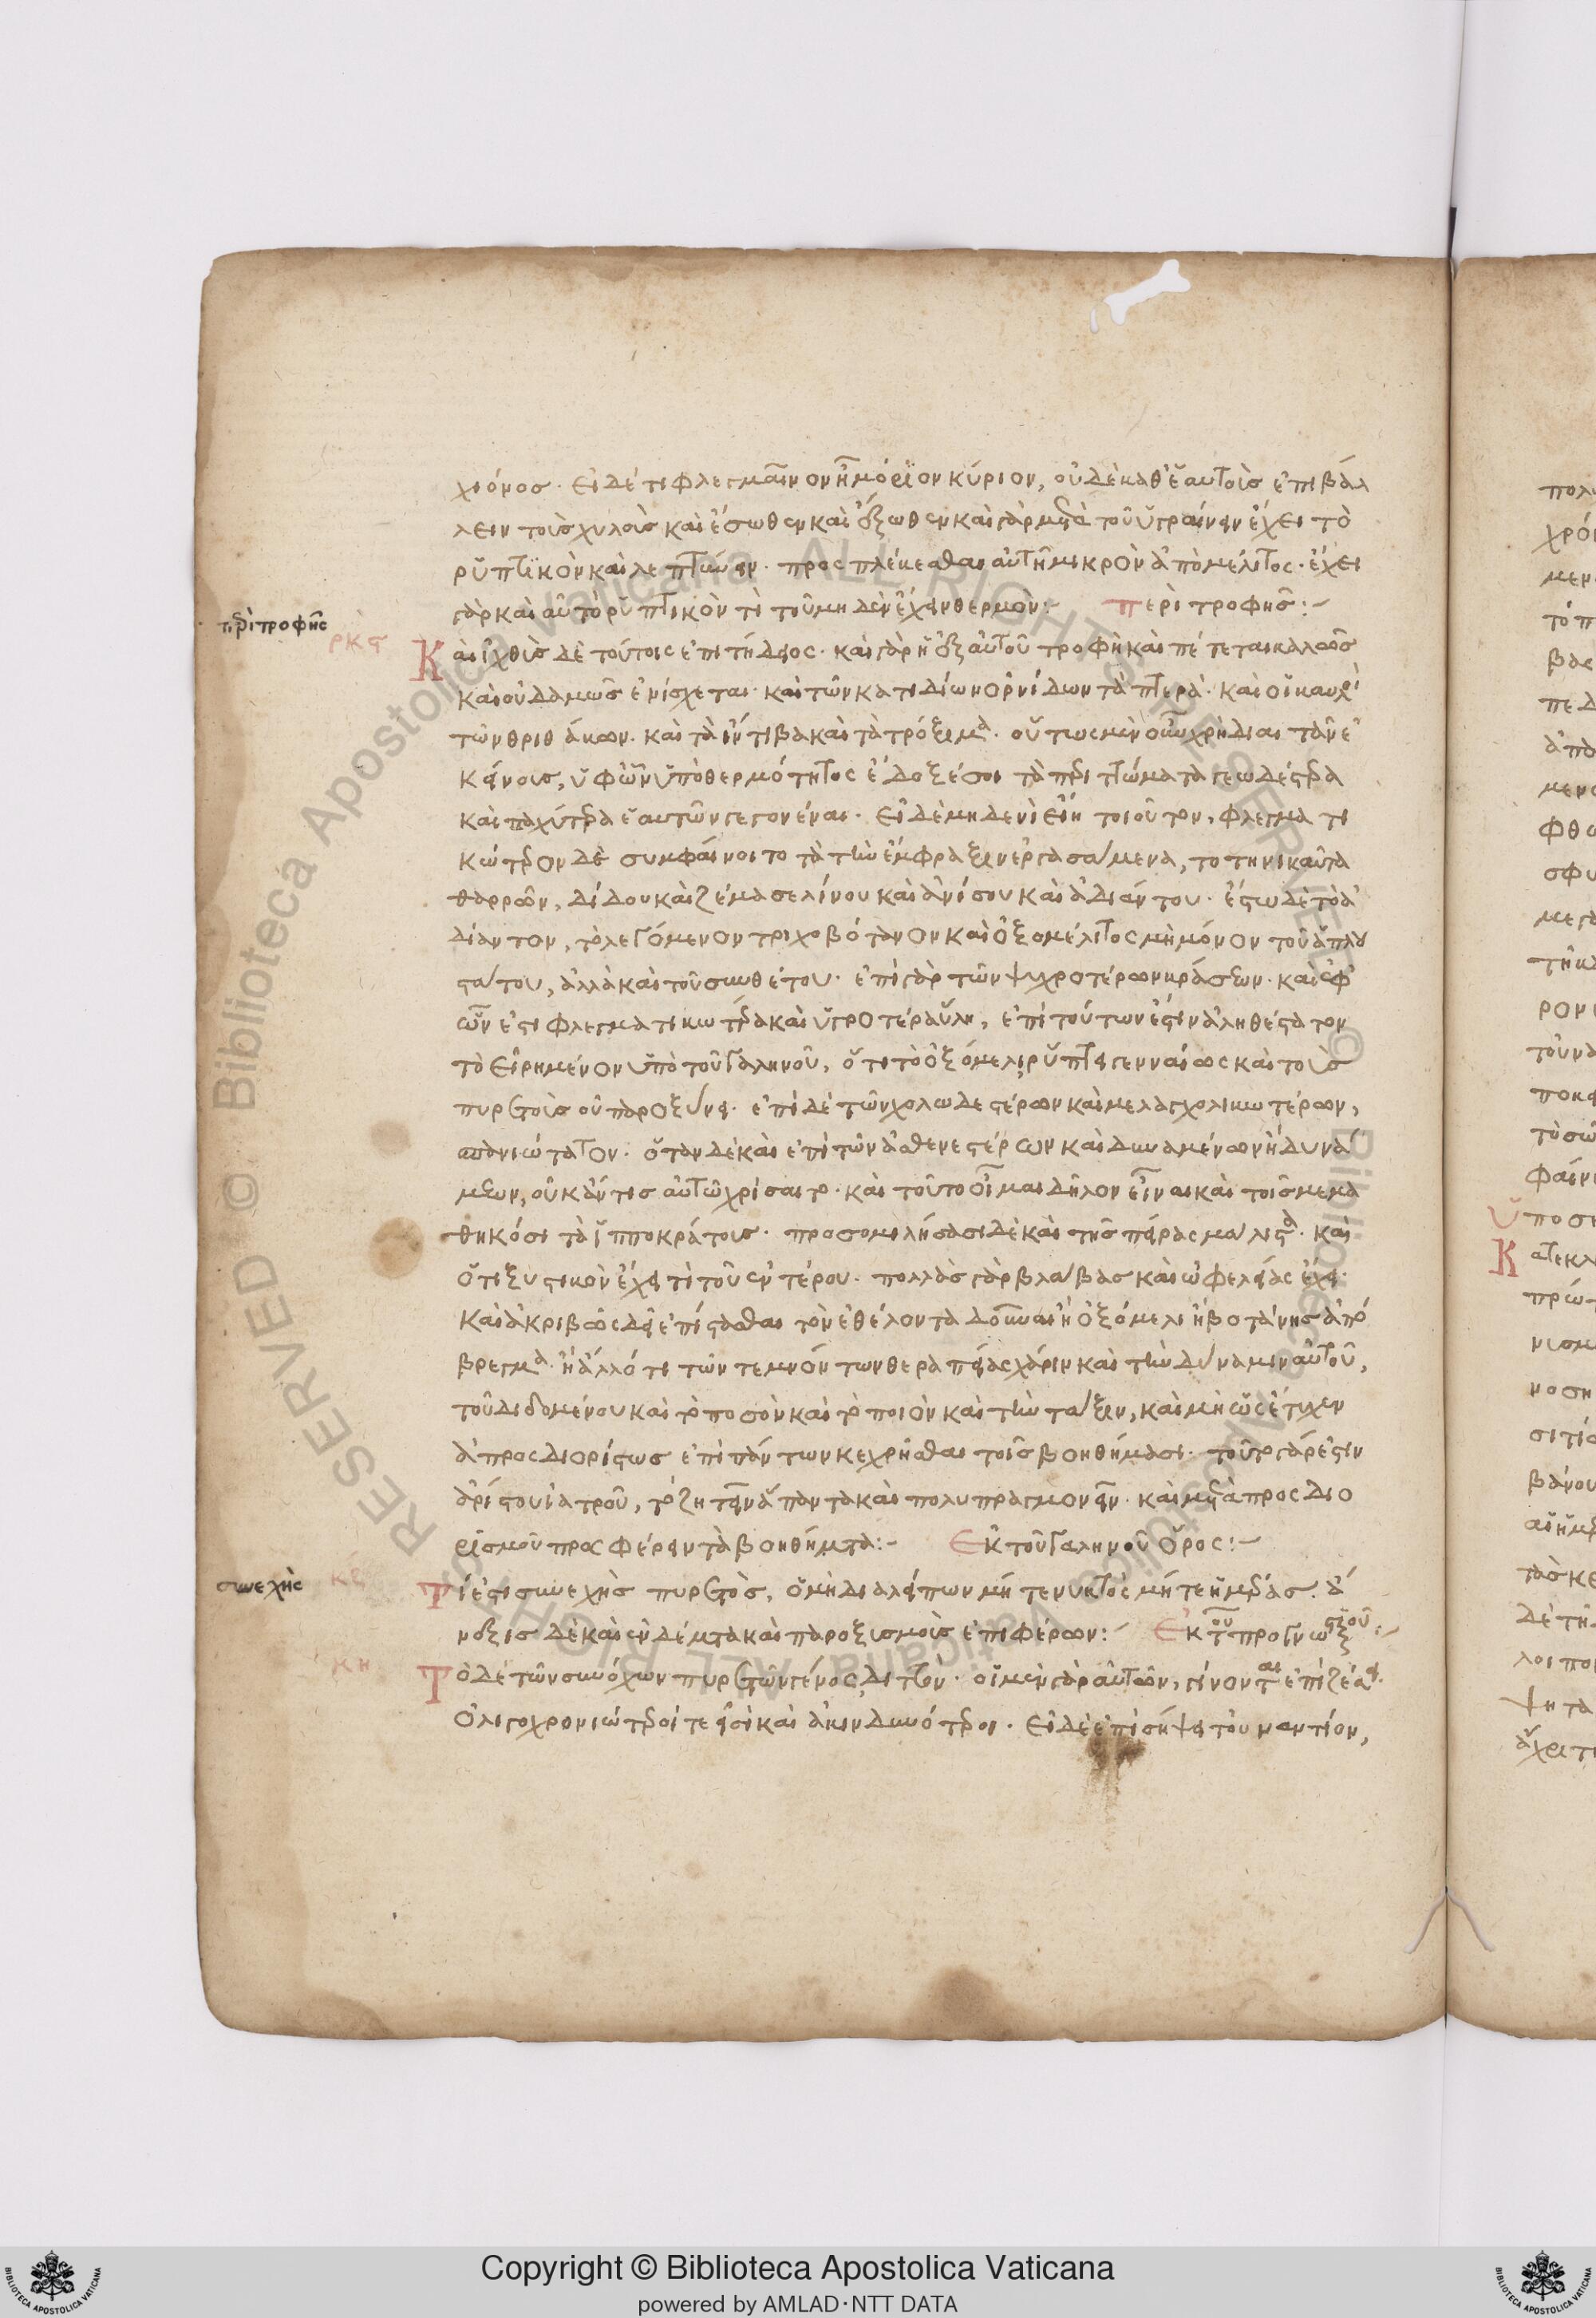 χιόνος. εἰ δέ τι φλεγμαῖνον ἦ μόριον κύριον, οὐ δὲ καθ' ἑαυτοῖς ἐπιβάλ
λειν τοῖς χυλοῖς καὶ ἔσωθεν καὶ ἔξωθεν καὶ γὰρ μετὰ τοῦ ὑγραίνειν ἔχει τὸ
ῥυπτικὸν καὶ λεπτῦνον. προσπλέκεσθαι αὐτῆ μικρὸν ἀπὸ μέλιτος. ἔχει
γὰρ καὶ αὐτὸ ῥυπτικὸν τὶ τοῦ μηδὲν ἔχειν θερμὸν:- περὶ τροφῆς:-
περὶ τροφῆς
ρκϛ
Καὶ ἰχθὺς δὲ τούτοις ἐπιτήδειος. καὶ γὰρ ἡ ἐξ αὐτοῦ τροφὴ καὶ πέττεται καλῶς
καὶ οὐδαμῶς ἐνίσχεται. καὶ τῶν κατοιδίων ὀρνίδων τὰ πτερά. καὶ οἱ καυλοὶ
τῶν θριδάκων. καὶ τὰ ἴντιβα καὶ τὰ τρόξιμα. οὕτως μὲν οὖν χρὴ διαιτᾶν ἐ
κείνοις, ὑφ' ὧν ὑπὸ θερμότητος ἔδοξέ σοι τὰ περιττώματα γεωδέστερα
καὶ παχύτερα ἑαυτῶν γεγονέναι. εἰ δὲ μηδενὶ εἴη τοιοῦτον, φλεγματι
κώτερον δὲ συμφαίνοιτο τὰ τὴν ἔμφραξιν ἐργασάμενα, τοτηνικαῦτα
θαρρῶν, δίδου καὶ ζέμα σελίνου καὶ ἀνίσου καὶ ἀδιάντου. ἔστω δὲ τὸ ἀ
δίαντον, τὸ λεγόμενον τριχοβότανον καὶ ὀξομέλιτος μὴ μόνον τοῦ ἁπλου
στάτου, ἀλλὰ καὶ τοῦ συνθέτου. ἐπὶ γὰρ τῶν ψυχροτέρων κράσεων. καὶ ἐφ'
ὧν ἐστι φλεγματικωτέρα καὶ ὑγροτέρα ὕλη, ἐπὶ τούτων ἐστὶν ἀληθέστατον
τὸ εἰρημένον ὑπὸ τοῦ Γαληνοῦ, ὅτι τὸ ὀξόμελι ῥύπτει γενναίως καὶ τοὺς
πυρετοὺς οὐ παροξύνει. ἐπὶ δὲ τῶν χολωδεστέρων καὶ μελαγχολικωτέρων,
σπανιώτατον. ὅταν δὲ καὶ ἐπὶ τῶν ἀσθενεστέρων καὶ δυναμένων ἢ δυνά
μεων, οὐκ ἄν τις αὐτῶ χρίσαιτο. καὶ τοῦτο οἶμαι δῆλον εἶναι καὶ τοῖς μεμα
θηκόσι τὰ ἱπποκράτους. προσομιλήσασι δὲ καὶ τῆς πείρας μάλιστα. καὶ
ὅτι ξυστικὸν ἔχει τὶ τοῦ ἐντέρου. πολλὰς γὰρ βλάβας καὶ ὠφελείας ἔχει.
καὶ ἀκριβῶς δεῖ ἐπίστασθαι τὸν ἐθέλοντα δοῦναι ἢ ὀξόμελι ἢ βοτάνης ἀπό
βρεγμα. ἢ ἄλλό τι τῶν τεμνόντων θεραπείας χάριν καὶ τὴν δύναμιν αὐτοῦ,
τοῦ διδομένου καὶ τὸ ποσὸν καὶ τὸ ποιὸν καὶ τὴν τάξιν, καὶ μὴ ὡς ἔτυχεν
ἀπροσδιορίστως ἐπὶ πάντων κεχρῆσθαι τοῖς βοηθήμασι. τοῦτο γάρ ἐστιν
ἀρίστου ἰατροῦ, τὸ ζητεῖν ἅπαντα καὶ πολυπραγμονεῖν. καὶ μετὰ προσδιο
ρισμοῦ προσφέρειν τὰ βοηθήματα:- Ἐκ τοῦ Γαληνοῦ ὅρος:-
συνεχής
κζ
Τί ἐστι συνεχὴς πυρετὸς, ὁ μὴ διαλείπων μήτε νυκτὸς μήτε ἡμέρας. ἀ
νέξεις δὲ καὶ ἐνδόματα καὶ παροξισμοὺς ἐπιφέρων:- Ἐκ τοῦ προγνωστικοῦ:-
κη
Τὸ δὲ τῶν συνόχων πυρετῶν γένος διττόν. οἱ μὲν γὰρ αὐτῶν, γίνονται ἐπὶ ζέσει.
ὀλιγοχρονιώτεροί τε εἰσὶ καὶ ἀκινδυνότεροι. εἰ δὲ ἐπὶ σήψει τοὐναντίον,